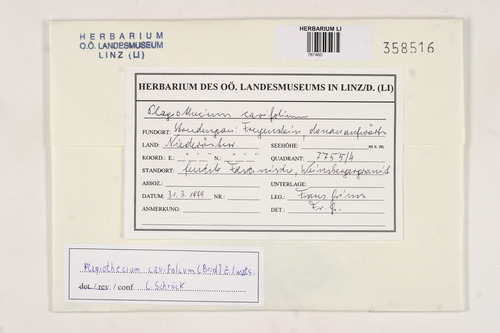 HERBARIUM
O.Ö. LANDESMUSEUM
LINZ (LI)
HERBARIUM LI
787460
358516
HERBARIUM DES OÖ. LANDESMUSEUMS IN LINZ/D. (LI)
Plagiothecium cavifolium
FUNDORT: Strudengau: Freyenstein, donauaufwärts
LAND: Niederöster SEEHÖHE: m s. m.
KOORD.: E.: ° ' " N.: ° ' " QUADRANT: 7755/4
STANDORT: feuchte Felsnische, Weinsbergergranit
ASSOZ.: UNTERLAGE:
DATUM: 31.3.1999 NR.: LEG.: Franz Grims
ANMERKUNG: DET.: Fr. G.
Plagiothecium cavifolium (Brid.) Z. Iwats.
det. / rev. / conf. C. Schröck